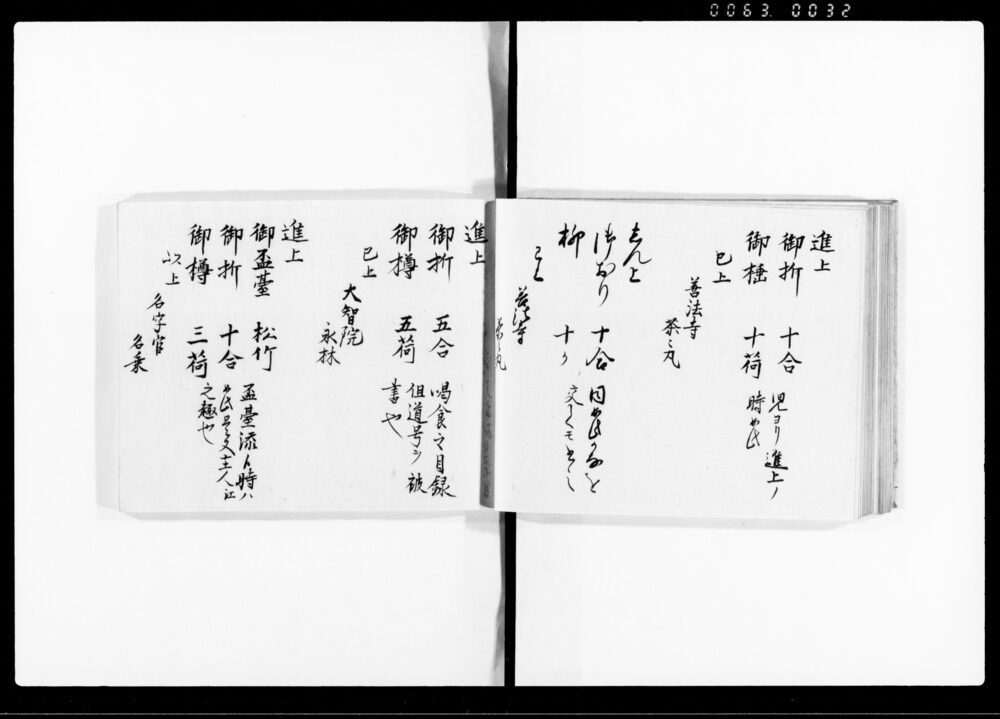 0063. 0032
進上
御折 十合 児ヨリ進上ノ
御樽 十荷 時如此
已上
善法寺
茶々丸
しん上
御おり 十合 同如此かなを
柳 十か
善法寺
進上
御折 五合 喝食之目録
御樽 五荷 但道号ヲ被
書也
已上
大智院
永林
進上
御盃臺 松竹 盃臺添ル時ハ
御折 十合 如此又士人江
御樽 三荷 之趣也
以上
名字官
名乗